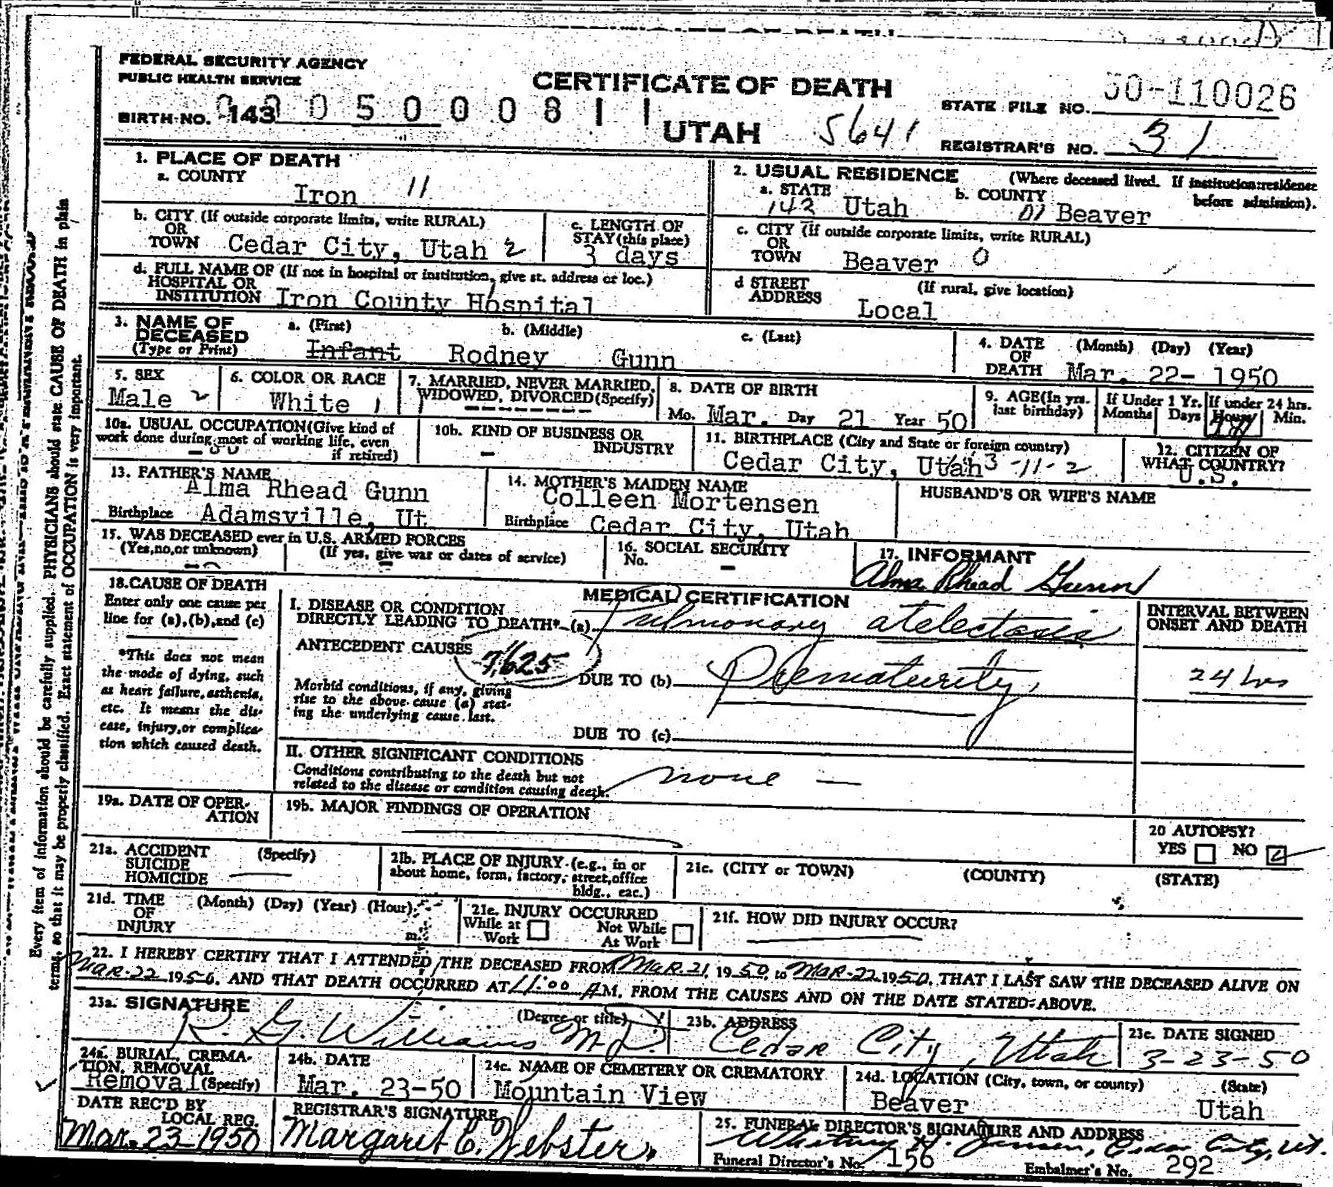 FEDERAL SECURITY AGENCY
PUBLIC HEALTH SERVICE
CERTIFICATE OF DEATH
UTAH
BIRTH NO. 143
5641
STATE FILE NO. 50-110026
REGISTRAR'S NO. 31
1. PLACE OF DEATH
a. COUNTY
Iron 11
b. CITY (If outside corporate limits, write RURAL)
OR
TOWN Cedar City, Utah 2
c. LENGTH OF
STAY (this place)
3 days
d. FULL NAME OF (If not in hospital or institution, give st. address or loc.)
HOSPITAL OR
INSTITUTION Iron County Hospital
2. USUAL RESIDENCE (Where deceased lived. If institution: residence
before admission).
a. STATE
Utah
b. COUNTY
01 Beaver
c. CITY (If outside corporate limits, write RURAL)
OR
TOWN Beaver 0
d STREET (If rural, give location)
ADDRESS Local
3. NAME OF
DECEASED
(Type or Print)
a. (First) b. (Middle) c. (Last)
Infant Rodney Gunn
4. DATE (Month) (Day) (Year)
OF
DEATH Mar. 22- 1950
5. SEX
Male 2
6. COLOR OR RACE
White 1
7. MARRIED, NEVER MARRIED,
WIDOWED, DIVORCED (Specify)
8. DATE OF BIRTH
Mo. Mar. Day 21 Year 50
9. AGE (In yrs.
last birthday)
If Under 1 Yr.
Months Days
If under 24 hrs.
Hours Min.
10a. USUAL OCCUPATION (Give kind of
work done during most of working life, even
if retired)
10b. KIND OF BUSINESS OR
INDUSTRY
11. BIRTHPLACE (City and State or foreign country)
Cedar City, Utah
12. CITIZEN OF
WHAT COUNTRY?
U.S.
13. FATHER'S NAME
Alma Rhead Gunn
Birthplace Adamsville, Ut.
14. MOTHER'S MAIDEN NAME
Colleen Mortensen
Birthplace Cedar City, Utah
HUSBAND'S OR WIFE'S NAME
15. WAS DECEASED ever in U.S. ARMED FORCES
(Yes, no, or unknown) (If yes, give war or dates of service)
16. SOCIAL SECURITY
No. -
17. INFORMANT
Alma Rhead Gunn
18. CAUSE OF DEATH
Enter only one cause per
line for (a), (b), and (c)
*This does not mean
the mode of dying, such
as heart failure, asthenia,
etc. It means the dis-
ease, injury, or complica-
tion which caused death.
MEDICAL CERTIFICATION
I. DISEASE OR CONDITION
DIRECTLY LEADING TO DEATH* (a) Pulmonary atelectasis
ANTECEDENT CAUSES
7625
Morbid conditions, if any, giving
rise to the above cause (a) stat-
ing the underlying cause last.
DUE TO (b) Prematurity
DUE TO (c)
II. OTHER SIGNIFICANT CONDITIONS
Conditions contributing to the death but not
related to the disease or condition causing death.
none —
INTERVAL BETWEEN
ONSET AND DEATH
24 hrs
19a. DATE OF OPER-
ATION
19b. MAJOR FINDINGS OF OPERATION
20 AUTOPSY?
YES NO
21a. ACCIDENT (Specify)
SUICIDE
HOMICIDE
21b. PLACE OF INJURY (e.g., in or
about home, form, factory, street, office
bldg., eac.)
21c. (CITY or TOWN) (COUNTY) (STATE)
21d. TIME (Month) (Day) (Year) (Hour)
OF
INJURY m.
21e. INJURY OCCURRED
While at Work
Not While At Work
21f. HOW DID INJURY OCCUR?
22. I HEREBY CERTIFY THAT I ATTENDED THE DECEASED FROM Mar. 21, 1950, to Mar-22 1950, THAT I LAST SAW THE DECEASED ALIVE ON
Mar-22 1950, AND THAT DEATH OCCURRED AT 11:00 A M, FROM THE CAUSES AND ON THE DATE STATED ABOVE.
23a. SIGNATURE (Degree or title)
R. G. Williams M.D.
23b. ADDRESS
Cedar City, Utah
23c. DATE SIGNED
3-23-50
24a. BURIAL, CREMA-
TION, REMOVAL
Removal (Specify)
24b. DATE
Mar. 23-50
24c. NAME OF CEMETERY OR CREMATORY
Mountain View
24d. LOCATION (City, town, or county) (State)
Beaver Utah
DATE REC'D BY
LOCAL REG.
Mar. 23 1950
REGISTRAR'S SIGNATURE
Margaret C. Webster
25. FUNERAL DIRECTOR'S SIGNATURE AND ADDRESS
Cedar City, Ut.
Funeral Director's No. 156 Embalmer's No. 292
Every item of information should be carefully supplied. PHYSICIANS should state CAUSE OF DEATH in plain
terms, so that it may be properly classified. Exact statement of OCCUPATION is very important.